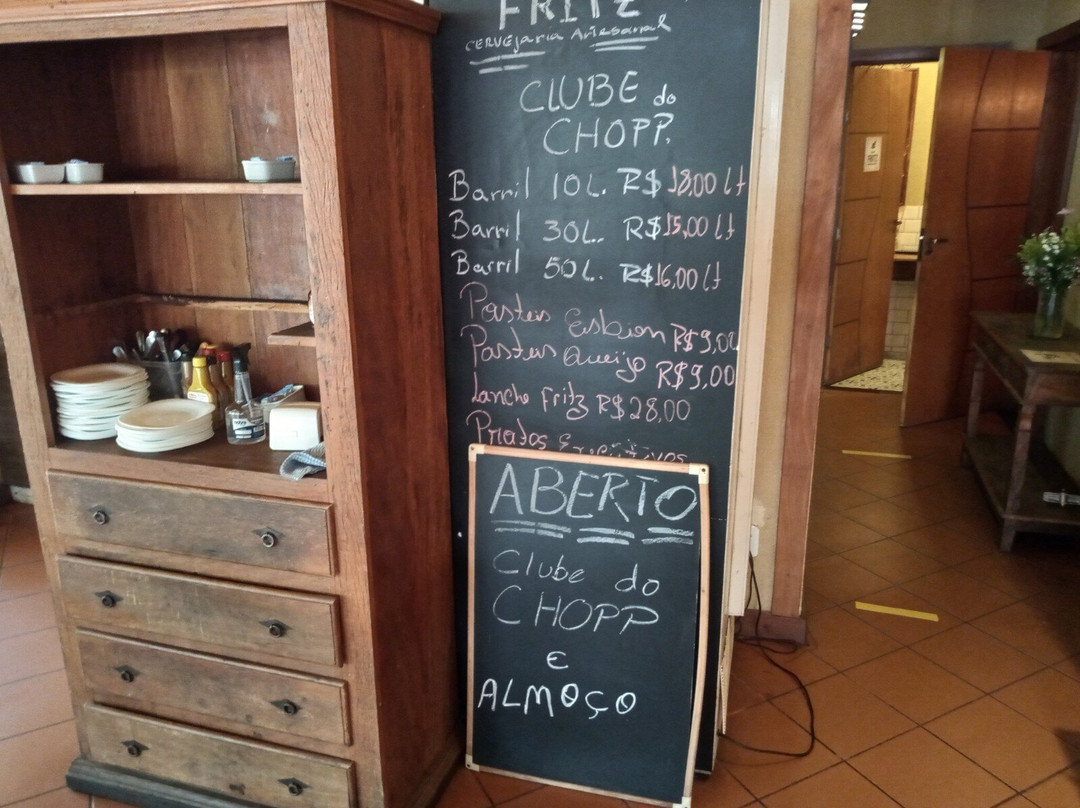 FRITZ
CERVEJARIA ARTESANAL
CLUBE do
CHOPP.
Barril 10L. R$ 18,00 Lt
Barril 30L. R$ 15,00 Lt
Barril 50L. R$ 16,00 Lt
Pasteis R$ 9,00
Pasteis Queijo R$ 9,00
Lanche Fritz R$ 28,00
ABERTO
Clube do
CHOPP
E
ALMOÇO